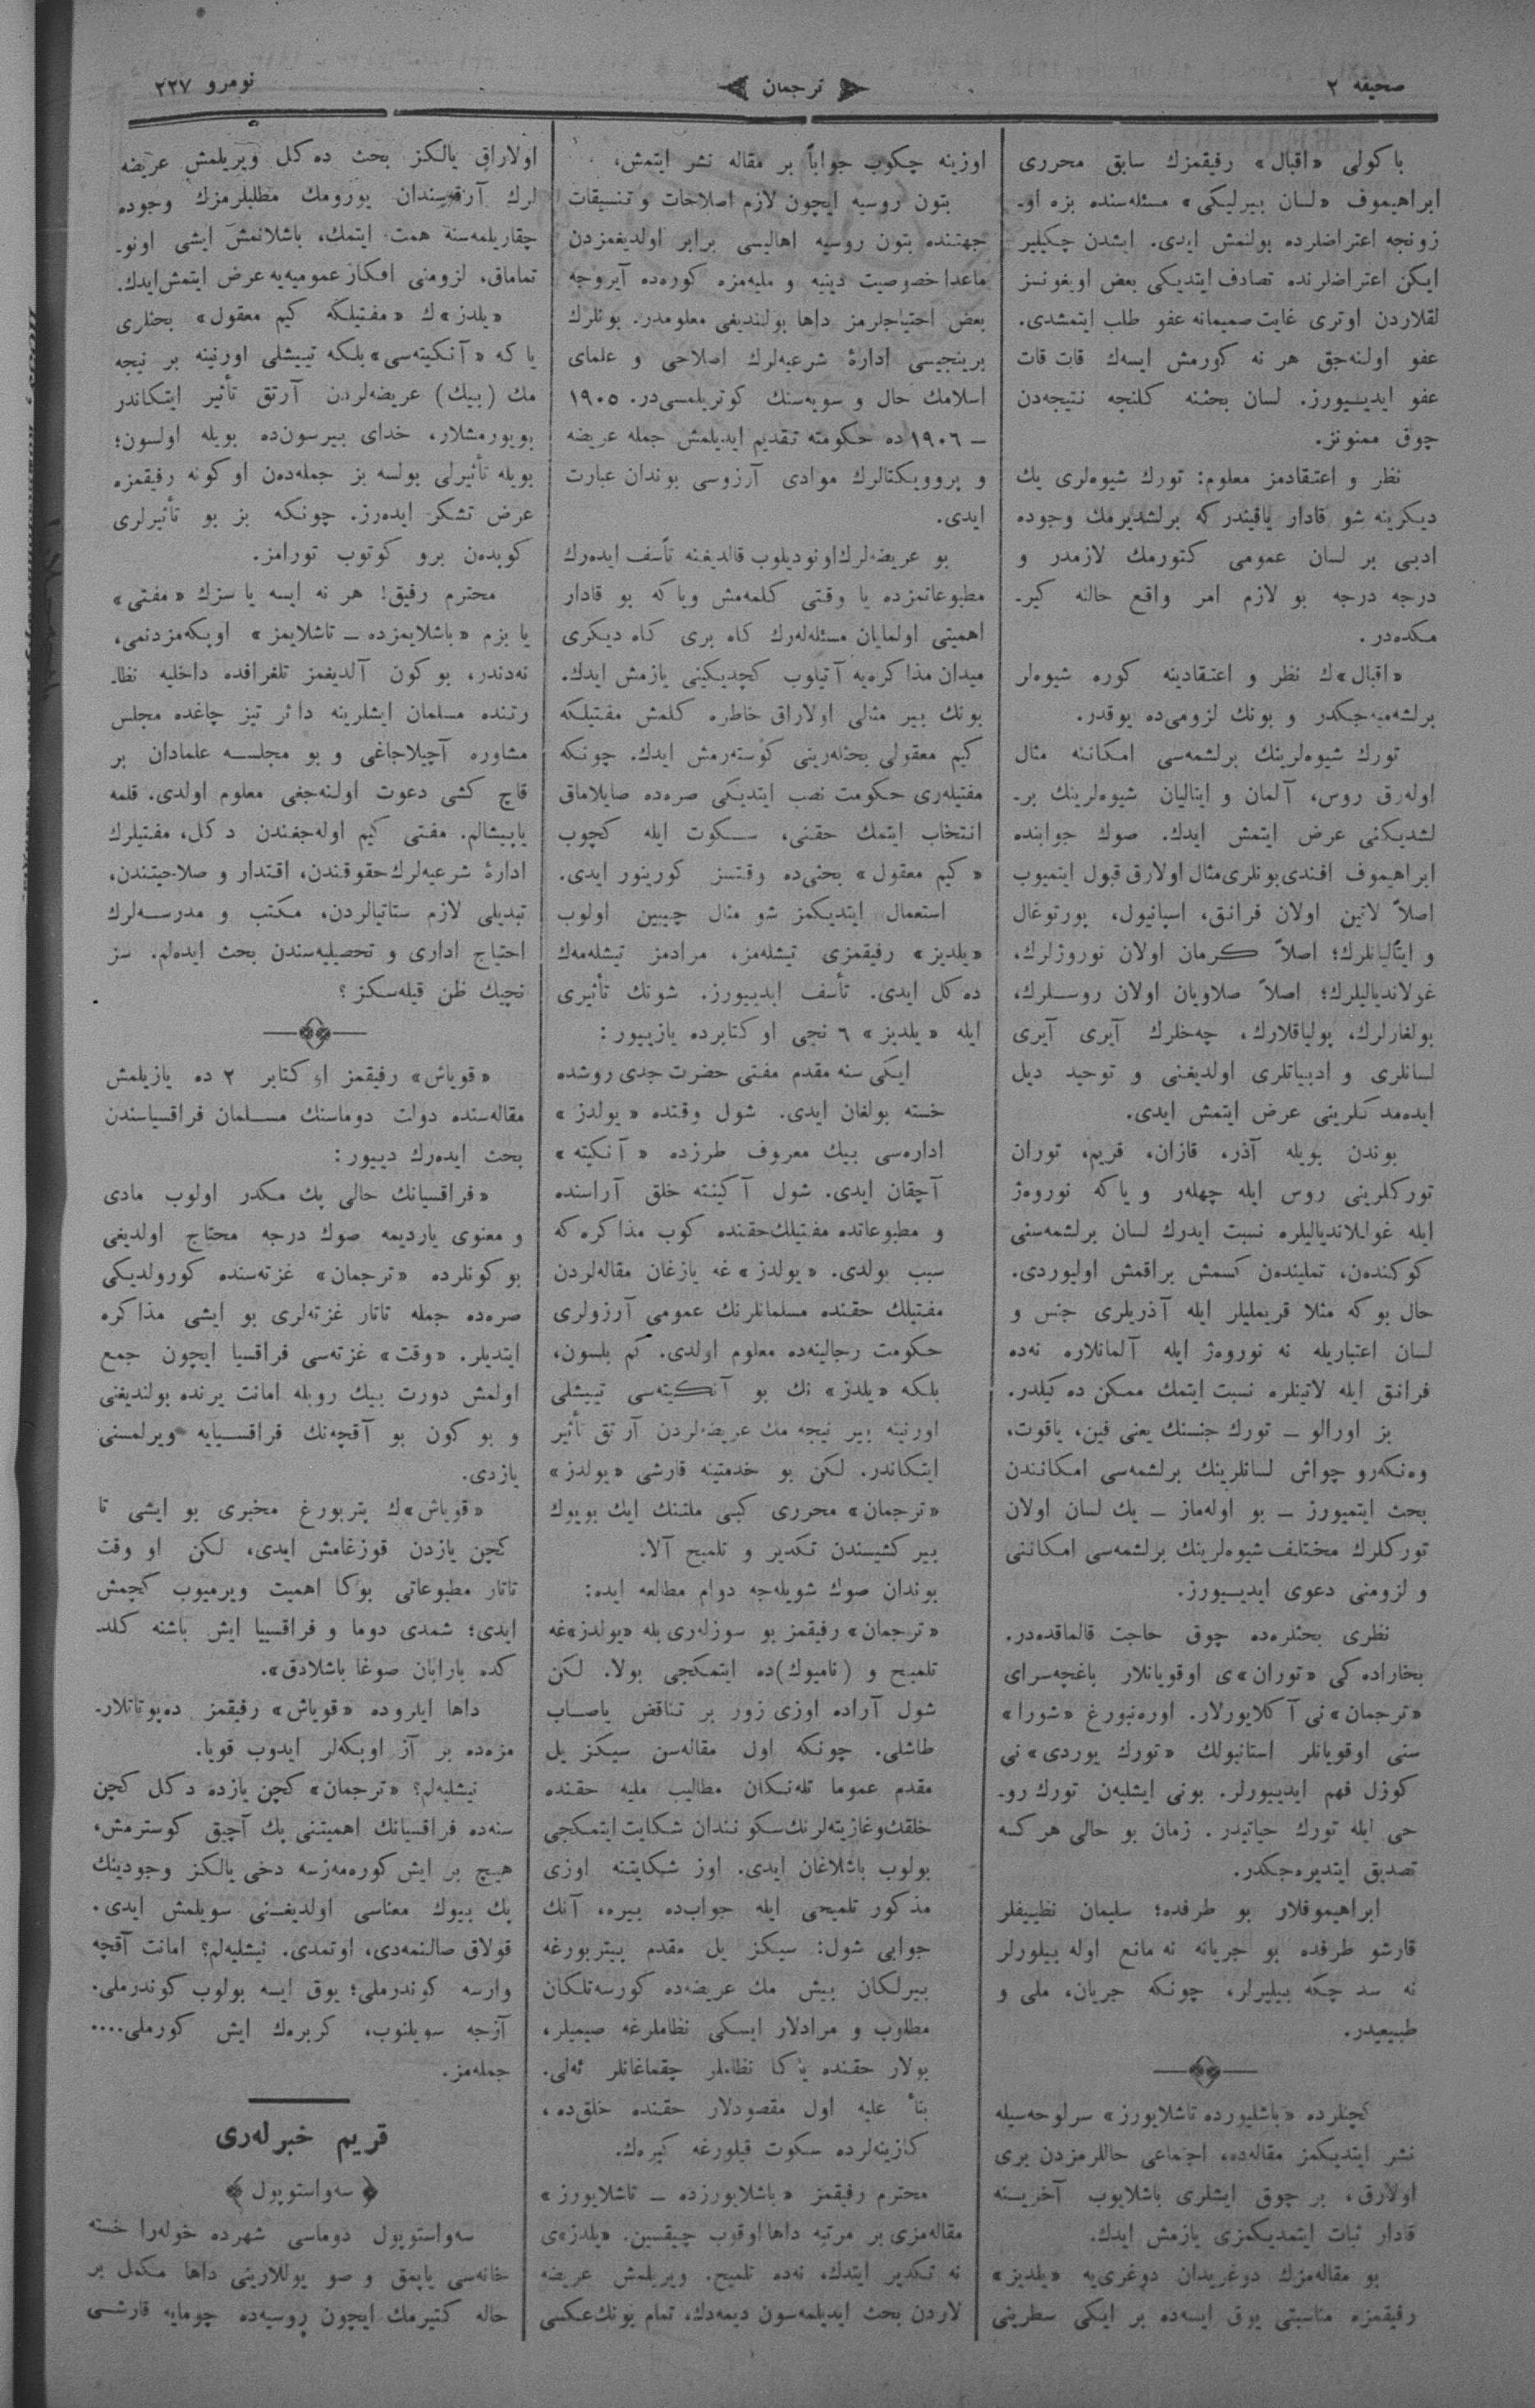 صحیفه ۲
ترجمان
نومرو ۲۲۷
باكولی «اقبال» رفیقمزك سابق محرری
ابراهیموف «لسان بیرلیكی» مسئله‌سنده بزه او-
زونجه اعتراضلرده بولنمش ایدی. ایشدن چكیلیر
ایكن اعتراضلرنده تصادف ایتدیكی بعض اویغونسز
لقلاردن اوتری غایت صمیمانه عفو طلب ایتمشدی.
عفو اولنه‌جق هر نه كورمش ایسه‌ك قات قات
عفو ایدیـیورز. لسان بحثنه كلنجه نتیجه‌دن
چوق ممنونز.
نظر و اعتقادمز معلوم: تورك شیوه‌لری یك
دیكرینه شو قادار یاقیندر كه برلشدیرمك وجوده
ادبی بر لسان عمومی كتورمك لازمدر و
درجه درجه بو لازم امر واقع حالنه كیر-
مكده‌در.
«اقبال»ك نظر و اعتقادینه كوره شیوه‌لر
برلشه‌میه‌جكدر و بونك لزومی‌ده یوقدر.
تورك شیوه‌لرینك برلشمه‌سی امكاننه مثال
اوله‌رق روس، آلمان و ایتالیان شیوه‌لرینك بر-
لشدیكنی عرض ایتمش ایدك. صوك جوابنده
ابراهیموف افندی بونلری مثال اولارق قبول ایتمیوب
اصلاً لاتین اولان فرانق، اسپانیول، پورتوغال
و ایتالیانلرك؛ اصلاً كرمان اولان نوروژلرك،
غولاندیالیلرك؛ اصلاً صلاویان اولان روسـلرك،
بولغارلرك، پولیاقلارك، چه‌خلرك آیری آیری
لسانلری و ادبیاتلری اولدیغنی و توحید دیل
ایده‌مدكلرینی عرض ایتمش ایدی.
بوندن بویله آذر، قازان، قریم، توران
توركلرینی روس ایله چهله‌ر و یاكه نوروه‌ژ
ایله غوللاندیالیلره نسبت ایدرك لسان برلشمه‌سنی
كوكندن، تملیندن كسمش براقمش اولیوردی.
حال بو كه مثلا قریملیلر ایله آذریلری جنس و
لسان اعتباریله نه نوروه‌ژ ایله آلمانلاره نه‌ده
فرانق ایله لاتینلره نسبت ایتمك ممكن ده‌كیلدر.
بز اورالو ــ تورك جنسنك یعنی فین، یاقوت،
وه‌نكه‌رو چواش لسانلرینك برلشمه‌سی امكانندن
بحث ایتمیورز ــ بو اوله‌ماز ــ یك لسان اولان
توركلرك مختلف شیوه‌لرینك برلشمه‌سی امكاننی
و لزومنی دعوی ایدیـیورز.
نظری بحثلره‌ده چوق حاجت قالماقده‌در.
بخاراده كی «توران»ی اوقویانلار باغچه‌سرای
«ترجمان»نی آكلایورلار. اوره‌نبورغ «شورا»
سنی اوقویانلر استانبولك «تورك یوردی»نی
كوزل فهم ایدییورلر. بونی ایشلیه‌ن تورك رو-
حی ایله تورك حیاتیدر. زمان بو حالی هر كسه
تصدیق ایتدیره‌جكدر.
ابراهیموفلار بو طرفده؛ سلیمان نظییفلر
قارشو طرفده بو جریانه نه مانع اوله بیلورلر
نه سد چكه بیلیرلر، چونكه جریان، ملی و
طبیعیدر.
كچنلرده «باشلیورده تاشلایورز» سرلوحه‌سیله
نشر ایتدیكمز مقاله‌ده، اجتماعی حاللرمزدن بری
اولارق، بر چوق ایشلری باشلایوب آخرینـه
قادار ثبات ایتمدیكمزی یازمش ایدك.
بو مقاله‌مزك دوغریدان دوغری‌یه «یلدیز»
رفیقمزه مناسبتی یوق ایسه‌ده بر ایكی سطرینی
اوزینه چكوب جواباً بر مقاله نشر ایتمش.
بتون روسیه ایچون لازم اصلاحات و تنسیقات
جهتنده بتون روسیه اهالیسی برابر اولدیغمزدن
ماعدا خصوصیت دینیه و ملیه‌مزه كوره‌ده آیروجه
بعض احتیاجلرمز داها بولندیغی معلومدر. بونلرك
برینجیسی ادارهٔ شرعیه‌لرك اصلاحی و علمای
اسلامك حال و سویه‌سنك كوتریلمسی‌در. ۱۹۰۵
ــ ۱۹۰۶ ده حكومته تقدیم ایدیلمش جمله عریضه
و پروویكتالرك موادی آرزوسی بوندان عبارت
ایدی.
بو عریضه‌لرك اونودیلوب قالدیغنه تأسف ایده‌رك
مطبوعاتمزده یا وقتی كلمه‌مش ویاكه بو قادار
اهمیتی اولمایان مسئله‌له‌رك كاه بری كاه دیكری
میدان مذاكره‌یه آتیلوب كچدیكینی یازمش ایدك.
بونك بیر مثالی اولاراق خاطره كلمش مفتیلكه
كیم معقولی بحثله‌رینی كوسته‌رمش ایدك. چونكه
مفتیله‌ری حكومت نصب ایتدیكی صره‌ده صایلاماق
انتخاب ایتمك حقنی، سـكوت ایله كچوب
«كیم معقول» بحثی‌ده وقتسز كورینور ایدی.
استعمال ایتدیكمز شو مثال چیبین اولوب
«یلدیز» رفیقمزی تیشله‌مز، مرادمز تیشله‌مه‌ك
ده‌كل ایدی. تأسف ایدییورز. شونك تأثیری
ایله «یلدیز» ۶ نجی اوكتابرده یازییور:
ایكی سنه مقدم مفتی حضرت جدی روشده
خسته بولغان ایدی. شول وقتده «یولدز»
اداره‌سی بیك معروف طرزده «آنكیته»
آچقان ایدی. شول آكینته خلق آراسنده
و مطبوعاتده مفتیلك حقنده كوب مذاكره‌كه
سبب بولدی. «یولدز»غه یازغان مقاله‌لردن
مفتیلك حقنده مسلمانلرنك عمومی آرزولری
حكومت رجالینه‌ده معلوم اولدی. كم بلسون،
بلكه «یلدز» نك بو آنكیته‌سی تییشلی
اورنینه بیر نیجه مك عریضه‌لردن آرتق تأثیر
ایتكاندر. لكن بو خدمتینه قارشی «یولدز»
«ترجمان» محرری كبی ملتنك ایك بویوك
بیر كشیسندن تكدیر و تلمیح آلا.
بوندان صوك شویله‌جه دوام مطالعه ایده:
«ترجمان» رفیقمز بو سوزله‌ری یله «یولدز»غه
تلمیح و (نامیوك)ده ایتمكجی بولا. لكن
شول آراده اوزی زور بر تناقض یاصـاب
طاشلی. چونكه اول مقاله‌سن سیكز یل
مقدم عموما تله‌نكان مطالیب ملیه حقنده
خلقك و غازیته‌لرنك سكوتندان شكایت ایتمكجی
بولوب باشلاغان ایدی. اوز شكایتنه اوزی
مذكور تلمیحی ایله جواب‌ده بیره، آنك
جوابی شول: سیكز یل مقدم بیتربورغه
بیرلكان بیش مك عریضه‌ده كورسه‌تلكان
مطلوب و مرادلار ایسكی نظاملرغه صیمیلر،
بولار حقنده یاكا نظاملر چقماغانلر ئه‌لی.
بنأ علیه اول مقصودلار حقنده خلق‌ده،
كازیته‌لرده سكوت قیلورغه كیره‌ك.
محترم رفیقمز «باشلایورزده ــ تاشلایورز»
مقاله‌مزی بر مرتبه داها اوقوب چیقسین. «یلدز»ی
نه تكدیر ایتدك، نه‌ده تلمیح. ویریلمش عریضه
لاردن بحث ایدیلمه‌سون دیمه‌دك، تمام بونك عكسی
اولاراق یالكز بحث ده‌كل ویریلمش عریضه
لرك آرقه‌سندان یورومك مطلبلرمزك وجوده
چقاریلمه‌سنه همت ایتمك، باشلانمش ایشی اونو-
تماماق، لزومنی افكار عمومیه‌یه عرض ایتمش ایدك.
«یلدز»ك «مفتیلكه كیم معقول» بحثلری
یا كه «آنكیته‌سی» بلكه تییشلی اورنینه بر نیجه
مك (بیك) عریضه‌لردن آرتق تأثیر ایتكاندر
بویورمشلار، خدای بیرسون‌ده بویله اولسون؛
بویله تأثیرلی بولسه بز جمله‌دن اوكونه رفیقمزه
عرض تشكر ایده‌رز. چونكه بز بو تأثیرلری
كوبدن برو كوتوب تورامز.
محترم رفیق! هر نه ایسه یا سزك «مفتی»
یا بزم «باشلایمزده ــ تاشلایمز» اوپكه‌مزدنمی،
نه‌دندر، بو كون آلدیغمز تلغرافده داخلیه نظا-
رتنده مسلمان ایشلرینه دائر تیز چاغده مجلس
مشاوره آچیلاجاغی و بو مجلسـه علمادان بر
قاچ كشی دعوت اولنه‌جغی معلوم اولدی. قلمه
یاپیشالم. مفتی كیم اوله‌جغندن دكل، مفتیلرك
ادارهٔ شرعیه‌لرك حقوقندن، اقتدار و صلاحیتندن،
تبدیلی لازم ستاتیالردن، مكتب و مدرسـه‌لرك
احتیاج اداری و تحصیلیه‌سندن بحث ایده‌لم. سز
نچیك ظن قیله‌سكز؟
«قویاش» رفیقمز اوكتابر ۲ ده یازیلمش
مقاله‌سنده دولت دوماسنك مسـلمان فراقسیاسندن
بحث ایده‌رك دییور:
«فراقسیانك حالی پك مكدر اولوب مادی
و معنوی یاردیمه صوك درجه محتاج اولدیغی
بو كونلرده «ترجمان» غزته‌سنده كورولدیكی
صره‌ده جمله تاتار غزته‌لری بو ایشی مذاكره
ایتدیلر. «وقت» غزته‌سی فراقسیا ایچون جمع
اولمش دورت بیك روبله امانت یرنده بولندیغنی
و بو كون بو آقچه‌نك فراقسـیایه ویرلمسنی
یازدی.
«قویاش»ك پتربورغ مخبری بو ایشی تا
كچن یازدن قوزغامش ایدی، لكن او وقت
تاتار مطبوعاتی بوكا اهمیت ویرمیوب كچمش
ایدی؛ شمدی دوما و فراقسییا ایش باشنه كلد-
كده بارابان صوغا باشلادق».
داها ایلروده «قویاش» رفیقمز ده‌پوتاتلار-
مزه‌ده بر آز اوپكه‌لر ایدوب قویا.
نیشلیه‌لم؟ «ترجمان» كچن یازده دكل كچن
سنه‌ده فراقسیانك اهمیتنی پك آچیق كوسترمش،
هیچ بر ایش كوره‌مه‌زسه دخی یالكز وجودینك
پك بیوك معناسی اولدیغـنی سویلمش ایدی.
قولاق صالنمه‌دی، اوتمدی. نیشلیه‌لم؟ امانت آقچه
وارسه كوندرملی؛ یوق ایسه بولوب كوندرملی.
آزجه سویلنوب، كریره‌ك ایش كورملی....
جمله‌مز.
قریم خبرله‌ری
سه‌واستوپول
سه‌واستوپول دوماسی شهرده خوله‌را خسته
خانه‌سی یاپمق و صو یوللارینی داها مكمل بر
حاله كتیرمك ایچون روسیه‌ده چومایه قارشـی